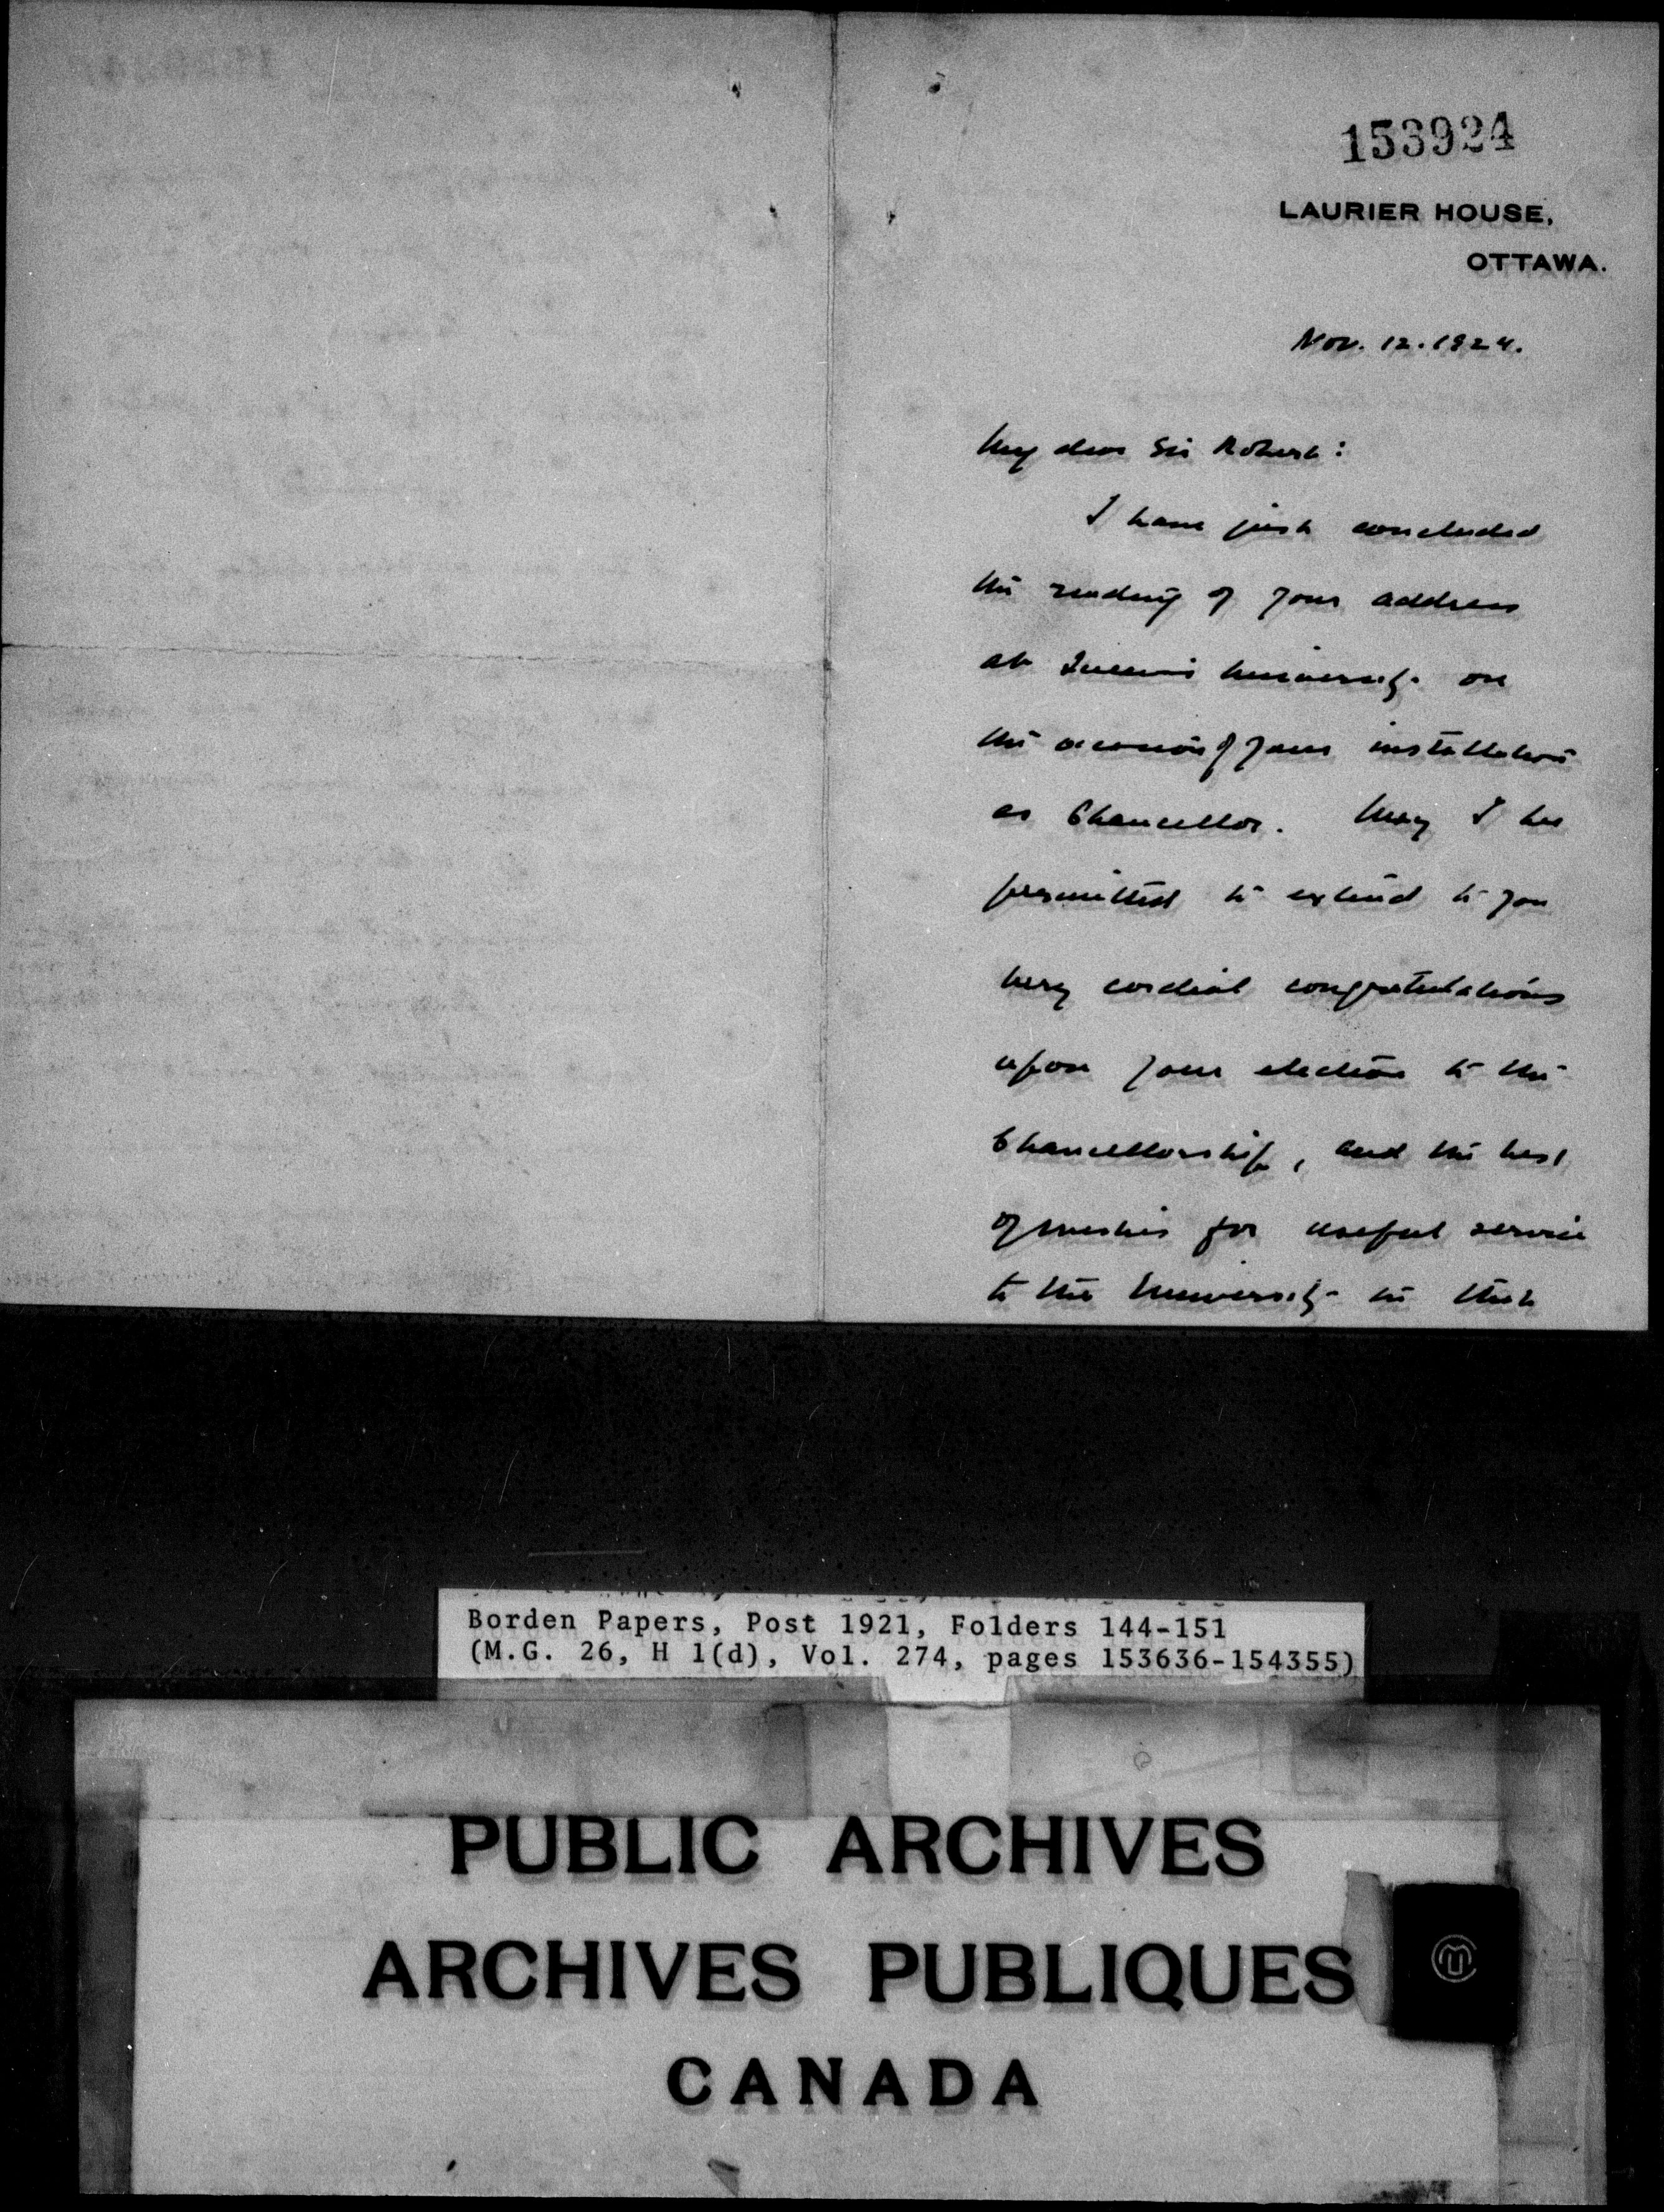 153924
LAURIER HOUSE,
OTTAWA.
Nov. 12. 1924.
My dear Sir Robert:
I have just concluded
the reading of your address
at Queen's University on
the occasion of your installation
as Chancellor. May I be
permitted to extend to you
very cordial congratulations
upon your election to the
Chancellorship, and the best
of wishes for useful service
to the University in that
Borden Papers, Post 1921, Folders 144-151
(M.G. 26, H 1(d), Vol. 274, pages 153636-154355)
PUBLIC ARCHIVES
ARCHIVES PUBLIQUES
CANADA